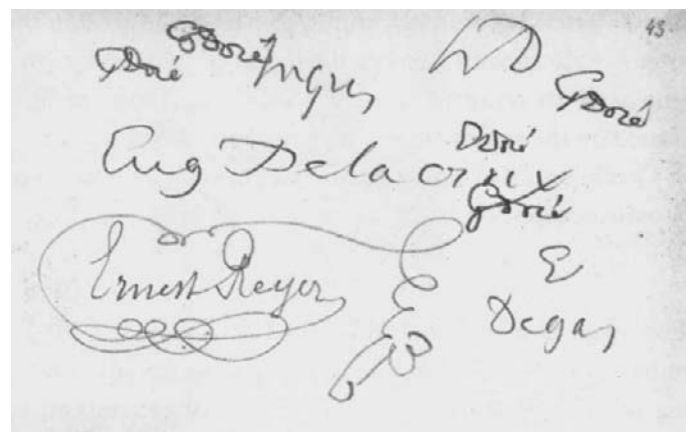 43
Doré GDoré Ingres D GDoré
Eug Delacroix Doré
GDoré
Ernest Reyer E
Degas